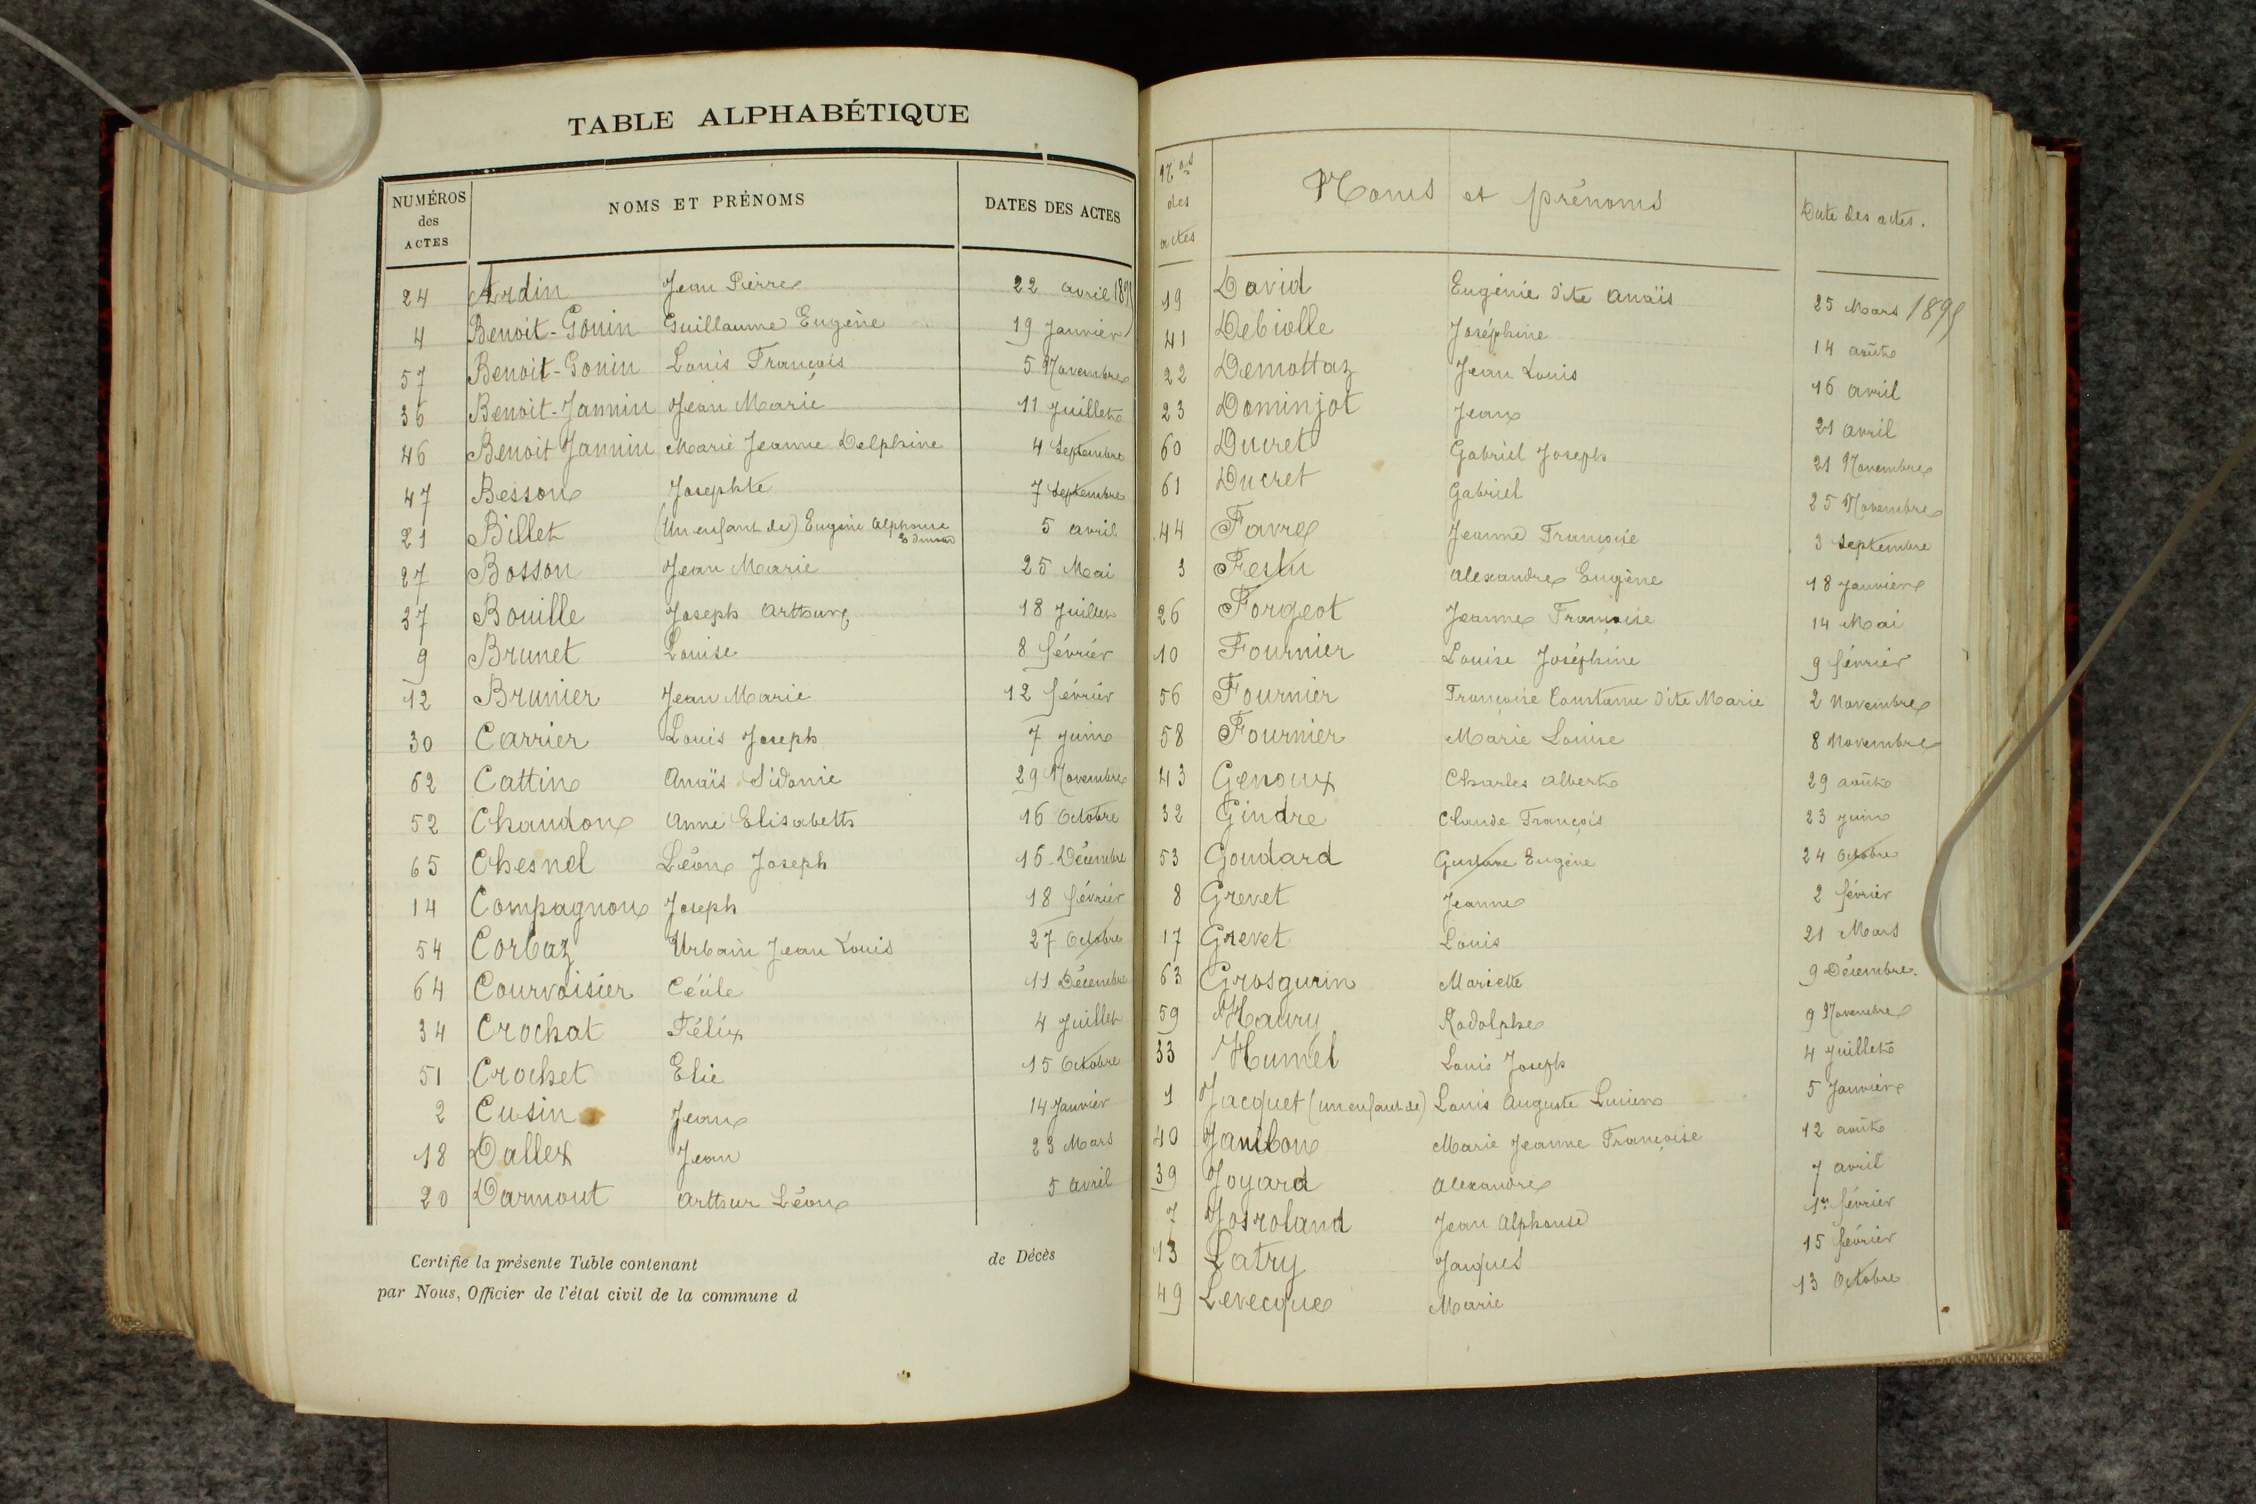 TABLE ALPHABÉTIQUE
NUMÉROS des ACTES NOMS ET PRÉNOMS DATES DES ACTES
24 Ardin Jean Pierre 22 avril
4 Benoit-Gonin Guillaume Eugène 19 Janvier
57 Benoit-Gonin Louis François 5 Novembre
36 Benoit-Jannin Jean Marie 11 Juillet
46 Benoit Jannin Marie Jeanne Delphine 4 Septembre
47 Besson Josephte 7 Septembre
21 Billet (Un enfant de) Eugène Alphonse
Edouard 5 avril
27 Bosson Jean Marie 25 Mai
37 Bouille Joseph Arthur 18 Juillet
9 Brunet Louise 8 février
12 Brunier Jean Marie 12 février
30 Carrier Louis Joseph 7 Juin
62 Cattin Anaïs Sidonie 29 Novembre
52 Chaudon Anne Elisabeth 16 Octobre
65 Chesnel Léon Joseph 16 Décembre
14 Compagnon Joseph 18 février
54 Corbaz Urbain Jean Louis 27 Octobre
64 Courvoisier Cécile 11 Décembre
34 Crochat Félix 4 Juillet
51 Crochet Elie 15 Octobre
2 Cusin Jean 14 Janvier
18 Dallex Jean 23 Mars
20 Darmout Arthur Léon 5 Avril
Certifie la présente Table contenant de Décès
par Nous, Officier de l'état civil de la commune d
Nos des actes Noms et prénoms Date des actes.
19 David Eugénie dite Anaïs 25 Mars 1899
41 Debiolle Joséphine 14 août
22 Demottaz Jean Louis 16 avril
23 Dominjot Jean 21 avril
60 Ducret Gabriel Joseph 21 Novembre
61 Ducret Gabriel 25 Novembre
44 Favre Jeanne Françoise 3 Septembre
3 Festu Alexandre Eugène 18 Janvier
26 Forgeot Jeanne Françoise 14 Mai
10 Fournier Louise Joséphine 9 février
56 Fournier Françoise Constance dite Marie 2 Novembre
58 Fournier Marie Louise 8 Novembre
43 Genoux Charles Albert 29 août
32 Gindre Claude François 23 Juin
53 Goudard Gustave Eugène 24 Octobre
8 Grevet Jeanne 2 février
17 Grevet Louis 21 Mars
63 Grosgurin Mariette 9 Décembre.
59 Haury Rodolphe 9 Novembre
33 Humel Louis Joseph 4 Juillet
1 Jacquet (un enfant de) Louis Auguste Lucien 5 Janvier
40 Janbon Marie Jeanne Françoise 12 août
39 Joyard Alexandre 7 avril
7 Josroland Jean Alphonse 1er février
13 Latry Jacques 15 février
49 Levecque Marie 13 Octobre